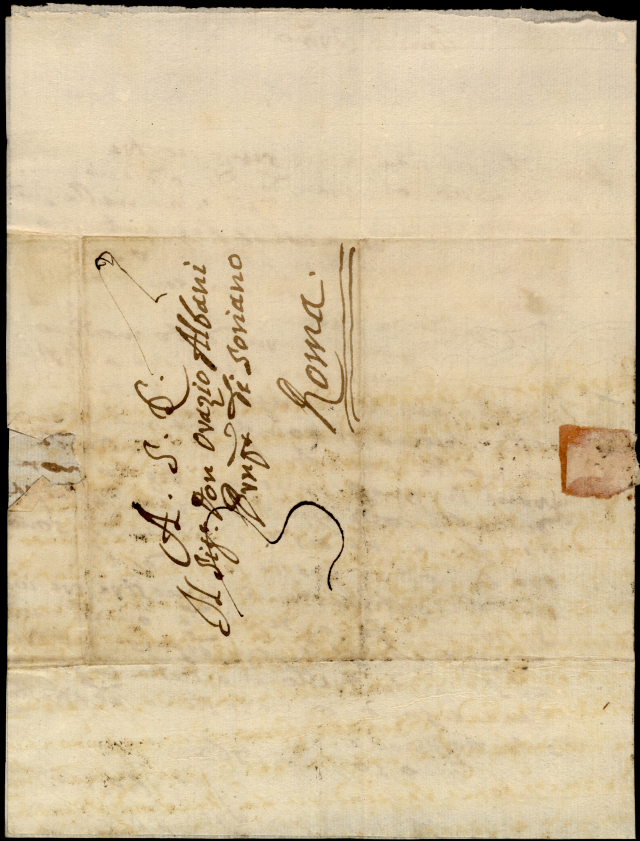 A. S. E.
Il Sig.r Don Orazio Albani
Prnpe di Soriano
Roma.